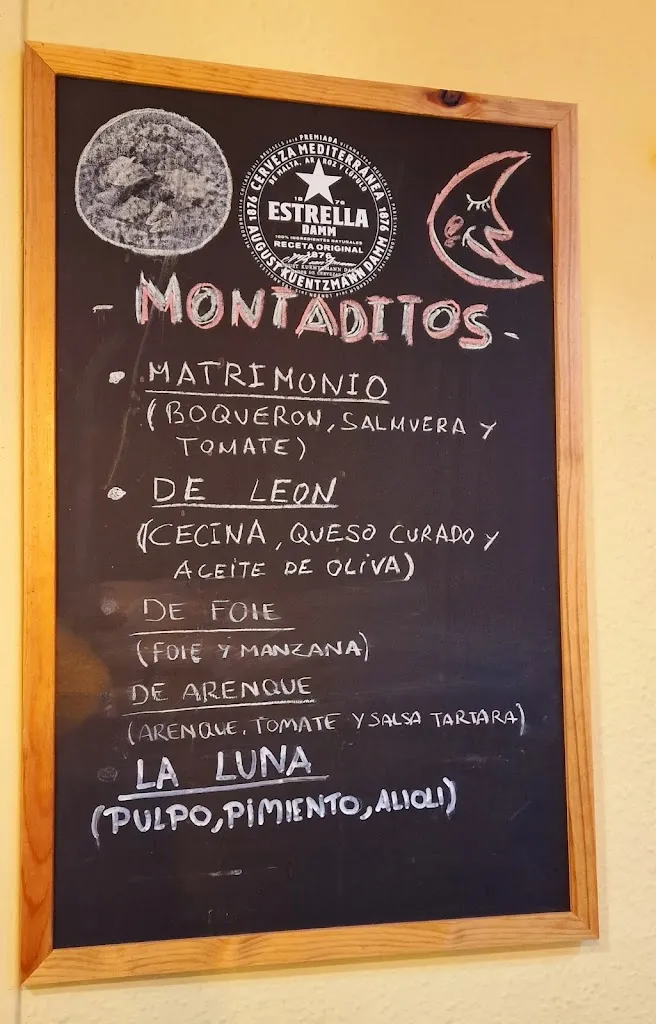 PREMIADA
CERVEZA MEDITERRÁNEA
DE MALTA, ARROZ Y LÚPULO
1876
1876
1876
ESTRELLA
DAMM
100% INGREDIENTES NATURALES
RECETA ORIGINAL
1876
AUGUST KUENTZMANN DAMM
- MONTADITOS -
• MATRIMONIO
(BOQUERON, SALMUERA Y
TOMATE)
• DE LEON
(CECINA, QUESO CURADO Y
ACEITE DE OLIVA)
• DE FOIE
(FOIE Y MANZANA)
DE ARENQUE
(ARENQUE, TOMATE Y SALSA TARTARA)
LA LUNA
(PULPO, PIMIENTO, ALIOLI)